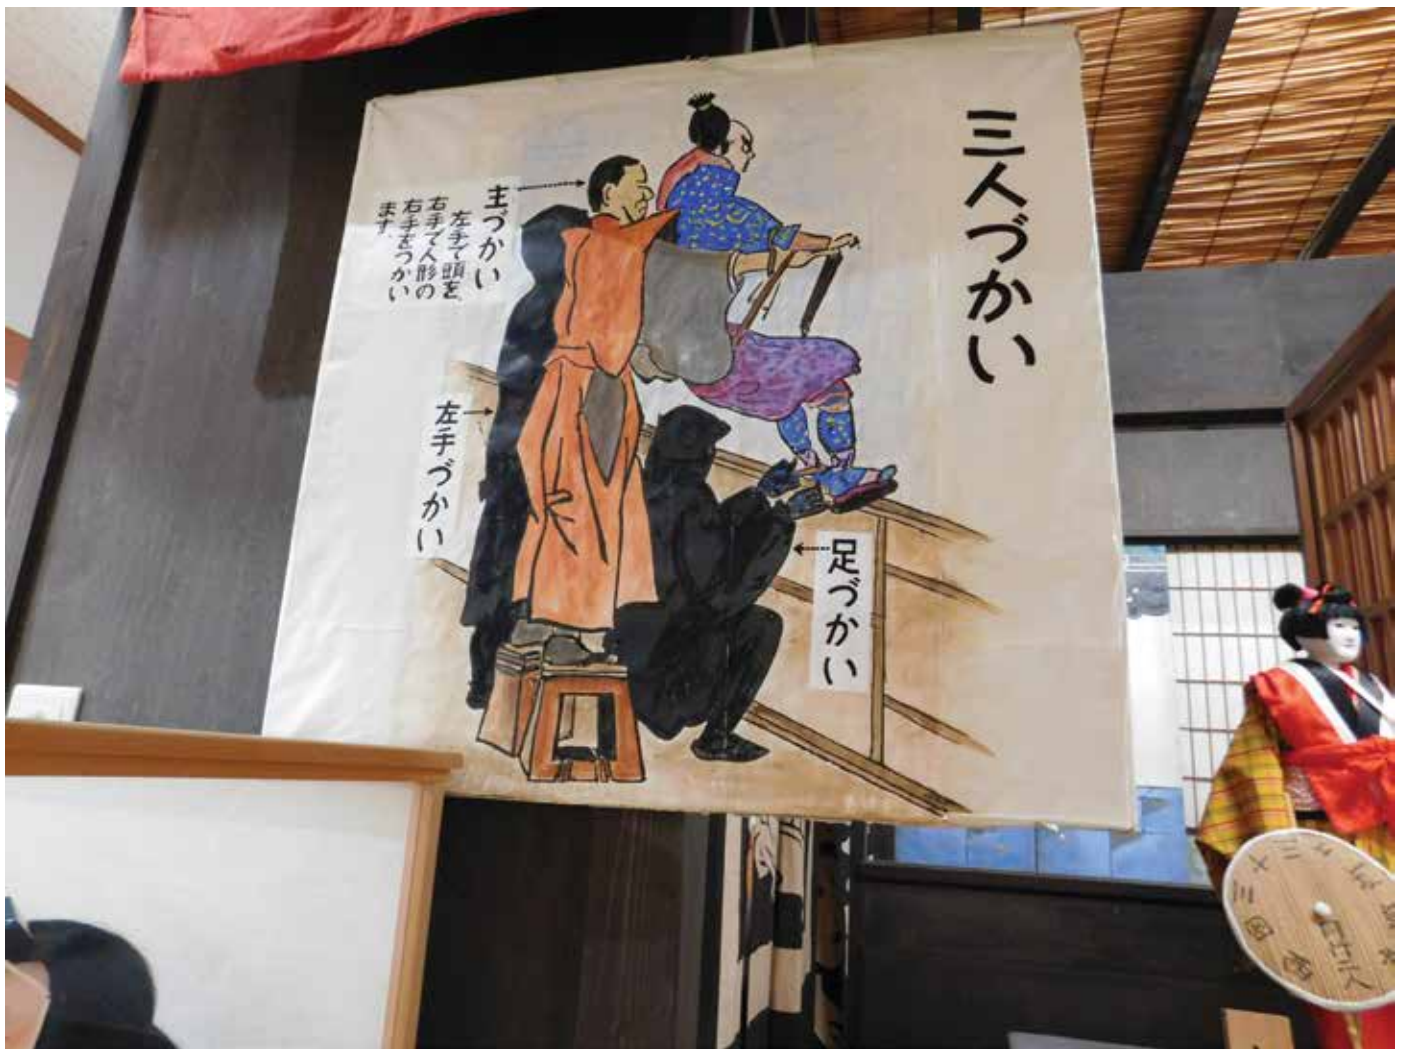 三人づかい
主づかい
左手で頭を、
右手で人形の
右手をつかい
ます。
左手づかい
足づかい